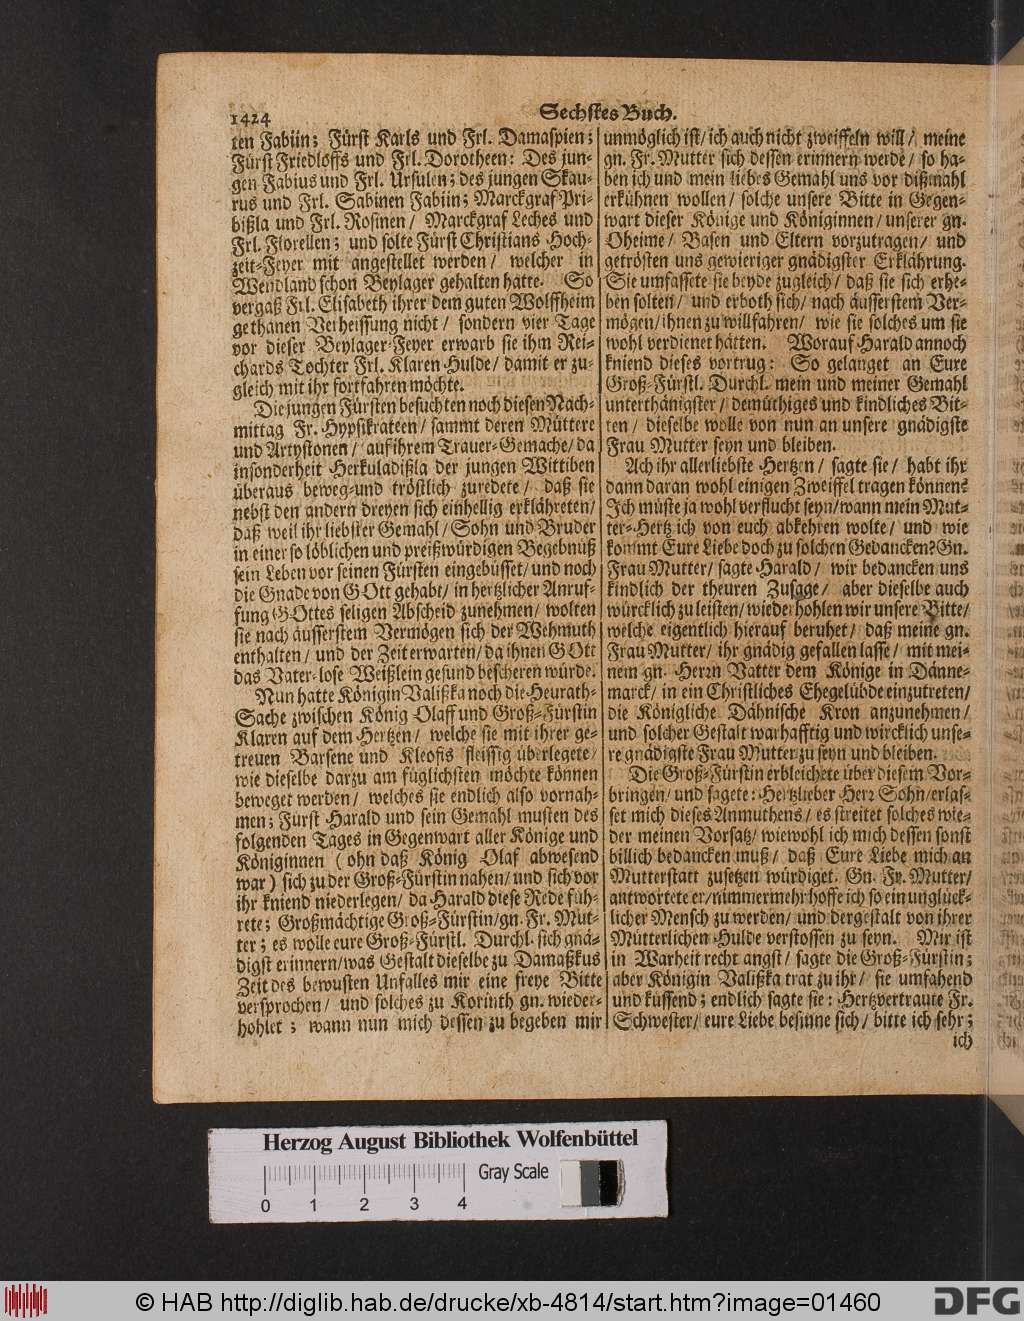 1424
Sechstes Buch.
ten Fabiin; Fürst Karls und Frl. Damaspien;
Fürst Friedloffs und Frl. Dorotheen: Des jun-
gen Fabius und Frl. Ursulen; des jungen Skau-
rus und Frl. Sabinen Fabiin; Marckgraf Pri-
bißla und Frl. Rosinen/ Marckgraf Leches und
Frl. Florellen; und solte Fürst Christians Hoch-
zeit-Feyer mit angestellet werden/ welcher in
Wendland schon Beylager gehalten hatte. So
vergaß Frl. Elisabeth ihrer dem guten Wolffheim
gethanen Verheissung nicht/ sondern vier Tage
vor dieser Beylager-Feyer erwarb sie ihm Rei-
chards Tochter Frl. Klaren-Hulde/ damit er zu-
gleich mit ihr fortfahren möchte.
Die jungen Fürsten besuchten noch diesen Nach-
mittag Fr. Hypsikrateen/ sammt deren Müttere
und Artystonen/ auf ihrem Trauer-Gemache/ da
insonderheit Herkuladißla der jungen Wittiben
überaus beweg-und tröstlich zuredete/ daß sie
nebst den andern dreyen sich einhellig erkläh­reten/
daß weil ihr liebster Gemahl/ Sohn und Bruder
in einer so löblichen und preißwürdigen Begebnüß
sein Leben vor seinen Fürsten eingebüsset/ und noch
die Gnade von GOtt gehabt/ in hertzlicher Anruf-
fung GOttes seligen Abscheid zunehmen/ wolten
sie nach äusserstem Vermögen sich der Wehmuth
enthalten/ und der Zeit erwarten/ da ihnen GOtt
das Vater-lose Weißlein gesund bescheren würde.
Nun hatte Königin Valißka noch die Heurath-
Sache zwischen König Olaff und Groß-Fürstin
Klaren auf dem Hertzen/ welche sie mit ihrer ge-
treuen Barsene und Kleofis fleissig überlegete/
wie dieselbe darzu am füglichsten möchte können
beweget werden/ welches sie endlich also vornah-
men; Fürst Harald und sein Gemahl musten des
folgenden Tages in Gegenwart aller Könige und
Königinnen (ohn daß König Olaf abwesend
war) sich zu der Groß-Fürstin nahen/ und sich vor
ihr kniend niederlegen/ da Harald diese Rede füh-
rete; Großmächtige Groß-Fürstin/ gn. Fr. Mut-
ter; es wolle eure Groß-Fürstl. Durchl. sich gnä-
digst erinnern/ was Gestalt dieselbe zu Damaßkus
Zeit des bewusten Unfalles mir eine freye Bitte
versprochen/ und solches zu Korinth gn. wieder-
hohlet; wann nun mich dessen zu begeben mir
unmöglich ist/ ich auch nicht zweiffeln will/ meine
gn. Fr. Mutter sich dessen erinnern werde/ so ha-
ben ich und mein liebes Gemahl uns vor dißmahl
erkühnen wollen/ solche unsere Bitte in Gegen-
wart dieser Könige und Königinnen/ unserer gn.
Oheime/ Basen und Eltern vorzutragen/ und
getrösten uns gewieriger gnädigster Erklährung.
Sie umfassete sie beyde zugleich/ daß sie sich erhe-
ben solten/ und erboth sich/ nach äusserstem Ver-
mögen/ ihnen zu willfahren/ wie sie solches um sie
wohl verdienet hätten. Worauf Harald annoch
kniend dieses vortrug: So gelanget an Eure
Groß-Fürstl. Durchl. mein und meiner Gemahl
unterthänigster/ demüthiges und kindliches Bit-
ten/ dieselbe wolle von nun an unsere gnädigste
Frau Mutter seyn und bleiben.
Ach ihr allerliebste Hertzen/ sagte sie/ habt ihr
dann daran wohl einigen Zweiffel tragen können?
Ich müste ja wohl verflucht seyn/ wann mein Mut-
ter-Hertz ich von euch abkehren wolte/ und wie
kommt Eure Liebe doch zu solchen Gedancken? Gn.
Frau Mutter/ sagte Harald/ wir bedancken uns
kindlich der theuren Zusage/ aber dieselbe auch
würcklich zu leisten/ wiederhohlen wir unsere Bitte/
welche eigentlich hierauf beruhet/ daß meine gn.
Frau Mutter/ ihr gnädig gefallen lasse/ mit mei-
nem gn. Herrn Vatter dem Könige in Dänne-
marck/ in ein Christliches Ehegelübde einzutreten/
die Königliche Dähnische Kron anzunehmen/
und solcher Gestalt warhafftig und wircklich unse-
re gnädigste Frau Mutter zu seyn und bleiben.
Die Groß-Fürstin erbleichete über diesem Vor-
bringen/ und sagete: Hertzlieber Herr Sohn/ erlas-
set mich dieses Anmuthens/ es streitet solches wie-
der meinen Vorsatz/ wiewohl ich mich dessen sonst
billich bedancken muß/ daß Eure Liebe mich an
Mutterstatt zusetzen würdiget. Gn. Fr. Mutter/
antwortete er/ nimmermehr hoffe ich so ein unglück-
licher Mensch zu werden/ und dergestalt von ihrer
Mütterlichen Hulde verstossen zu seyn. Mir ist
in Warheit recht angst/ sagte die Groß-Fürstin;
aber Königin Valißka trat zu ihr/ sie umfahend
und küssend; endlich sagte sie: Hertzvertraute Fr.
Schwester/ eure Liebe besinne sich/ bitte ich sehr;
ich
Herzog August Bibliothek Wolfenbüttel
Gray Scale
0 1 2 3 4
© HAB http://diglib.hab.de/drucke/xb-4814/start.htm?image=01460
DFG